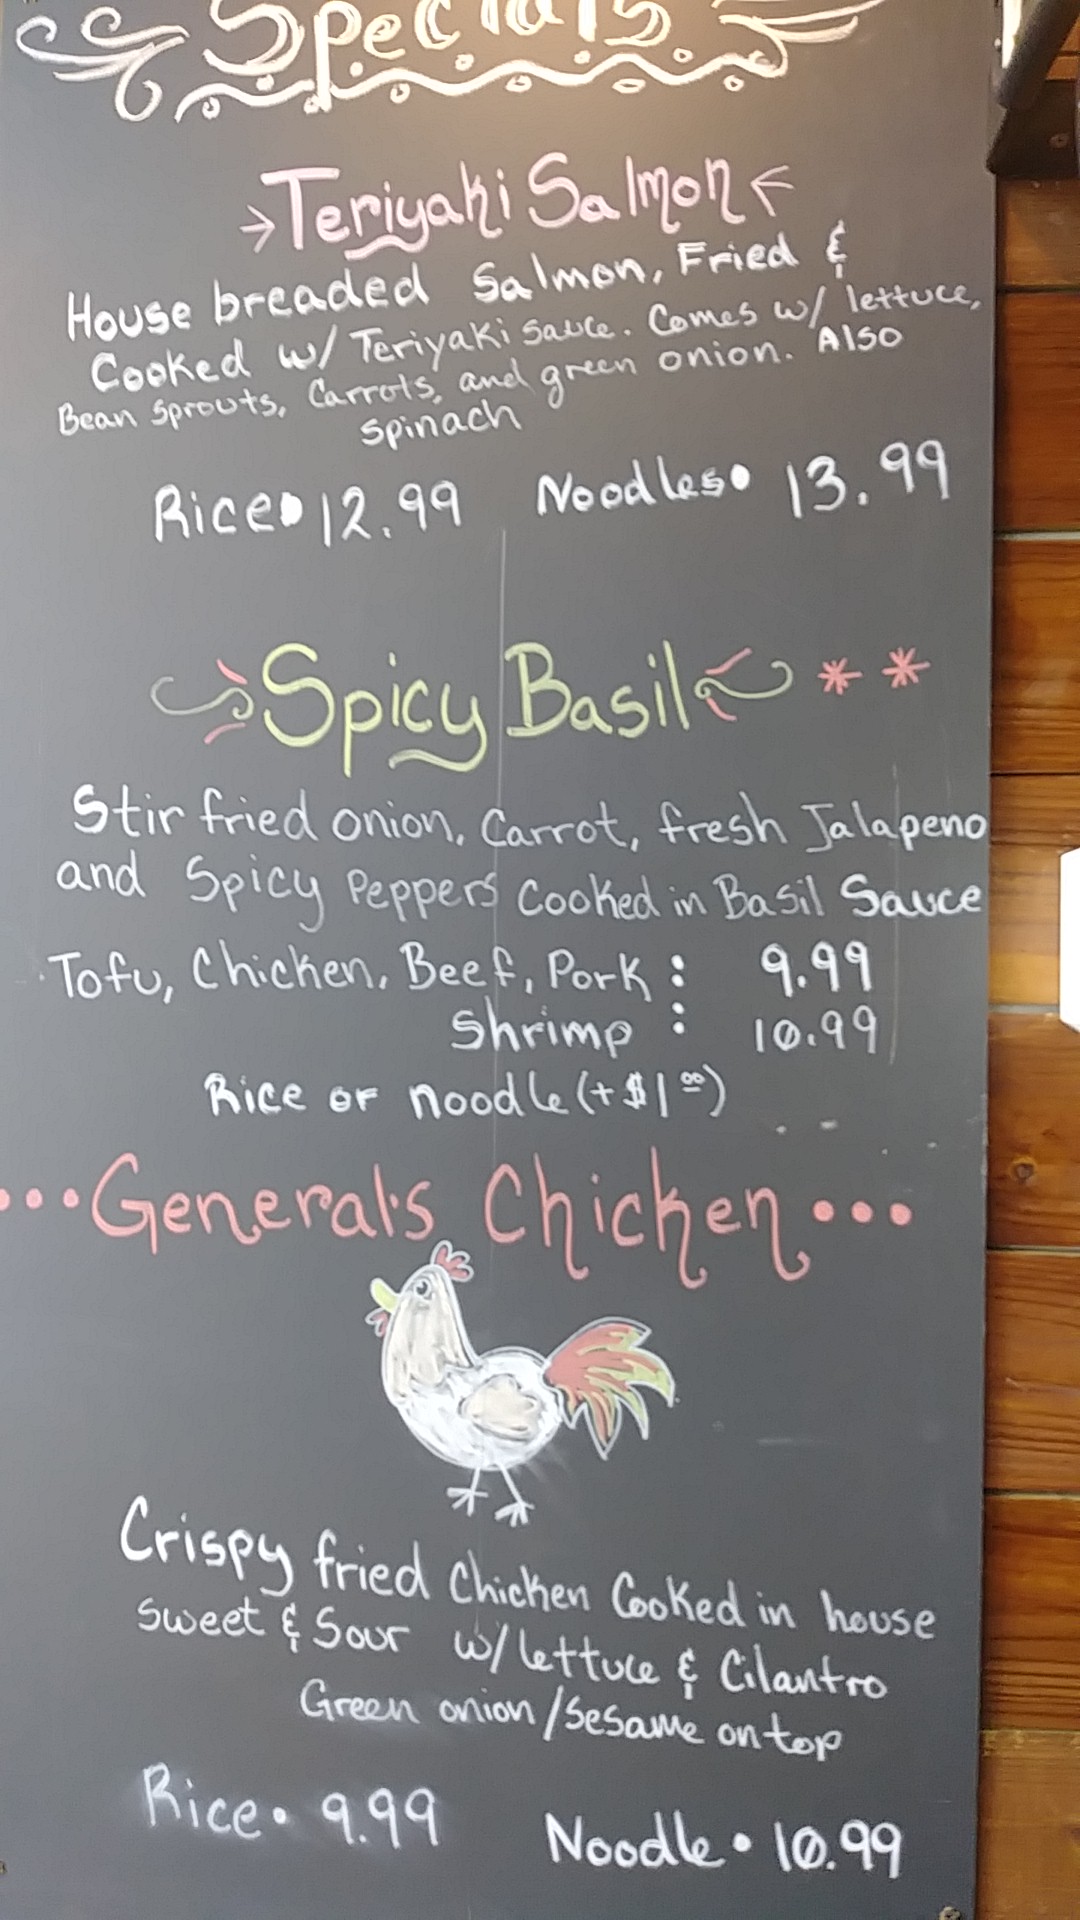 Specials
Teriyaki Salmon
House breaded Salmon, Fried &
Cooked w/ Teriyaki sauce. Comes w/ lettuce,
Bean Sprouts, Carrots, and green onion. Also
spinach
Rice • 12.99 Noodles • 13.99
Spicy Basil **
Stir fried onion, Carrot, fresh Jalapeno
and Spicy Peppers Cooked in Basil Sauce
Tofu, Chicken, Beef, Pork : 9.99
Shrimp : 10.99
Rice or noodle (+$1.00)
...General's Chicken...
Crispy fried Chicken Cooked in house
Sweet & Sour w/ lettuce & Cilantro
Green onion/Sesame on top
Rice • 9.99 Noodle • 10.99